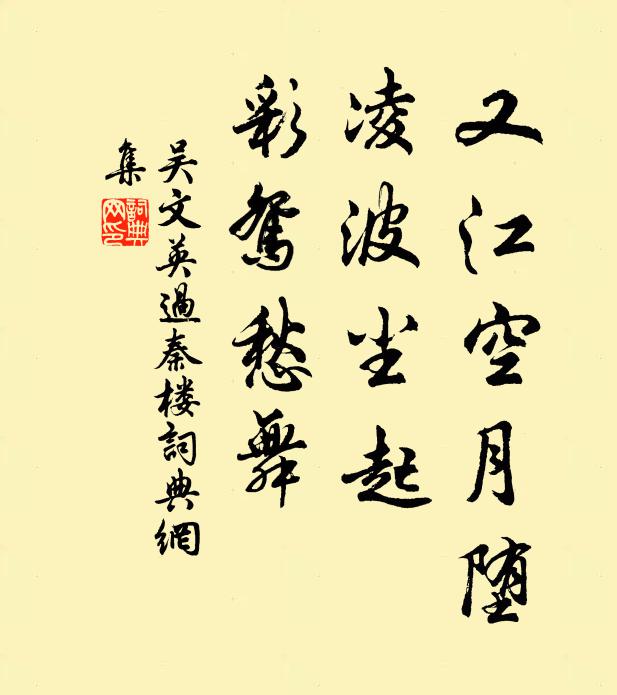 又江空月堕
凌波尘起
彩鸳愁舞
吴文英過秦楼詞典網
集
詞典网印